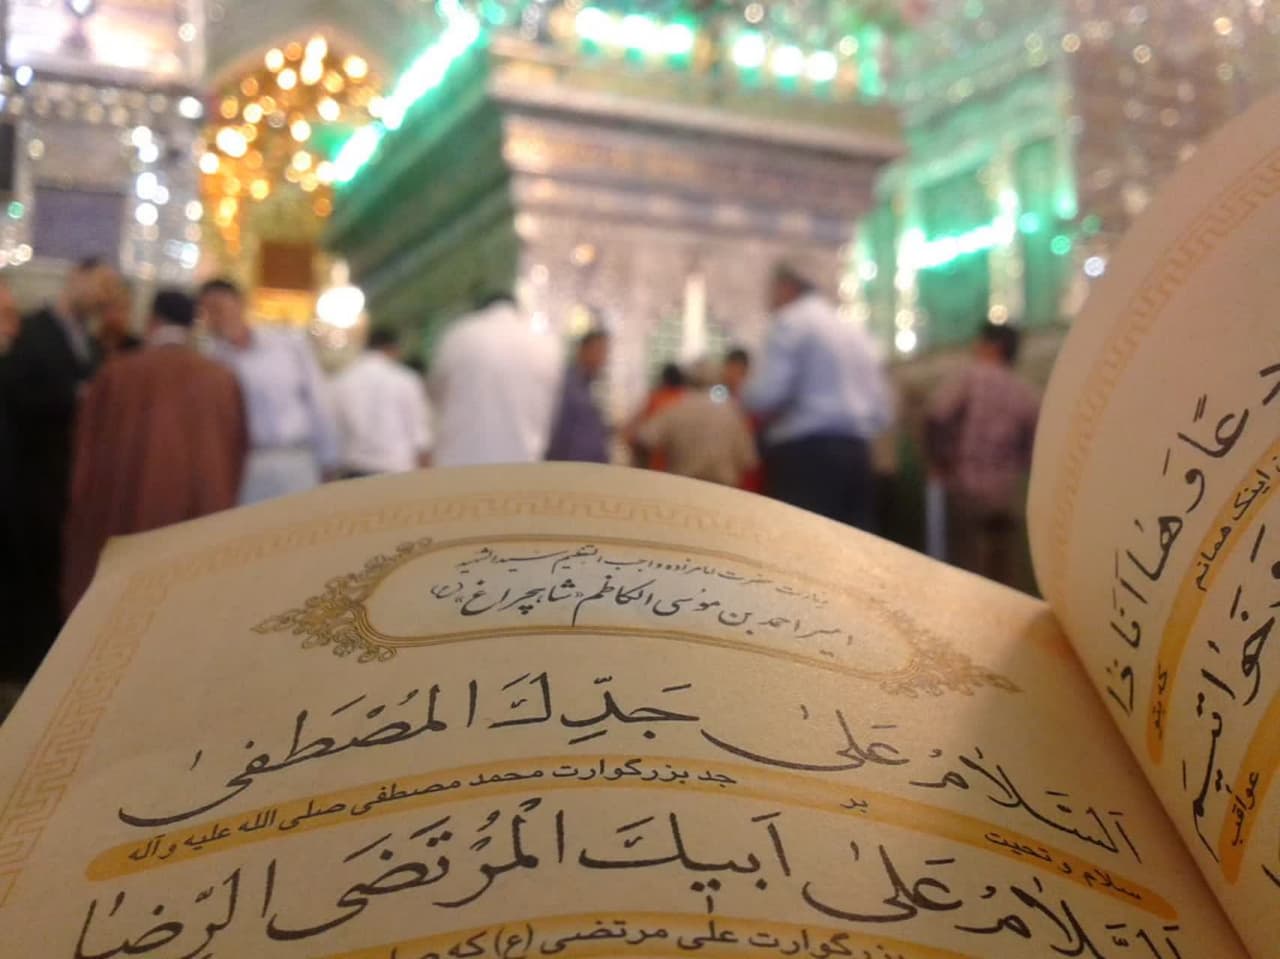 زیارت حضرت امامزاده واجب التعظیم سیدالشهید
امیر احمد بن موسی الکاظم «شاهچراغ» (ع)
اَلسَّلامُ عَلیٰ جَدِّكَ المُصْطَفیٰ
سلام و تحیت بر جد بزرگوارت محمد مصطفی صلی الله علیه و آله
اَلسَّلامُ عَلیٰ اَبیكَ الْمُرْتَضَی الرِّضا
بزرگوارت علی مرتضی (ع) که
عًا وَ هٰا اَنَا ذا
اینک همانم که
وَ خَواتیمَ
عواقب